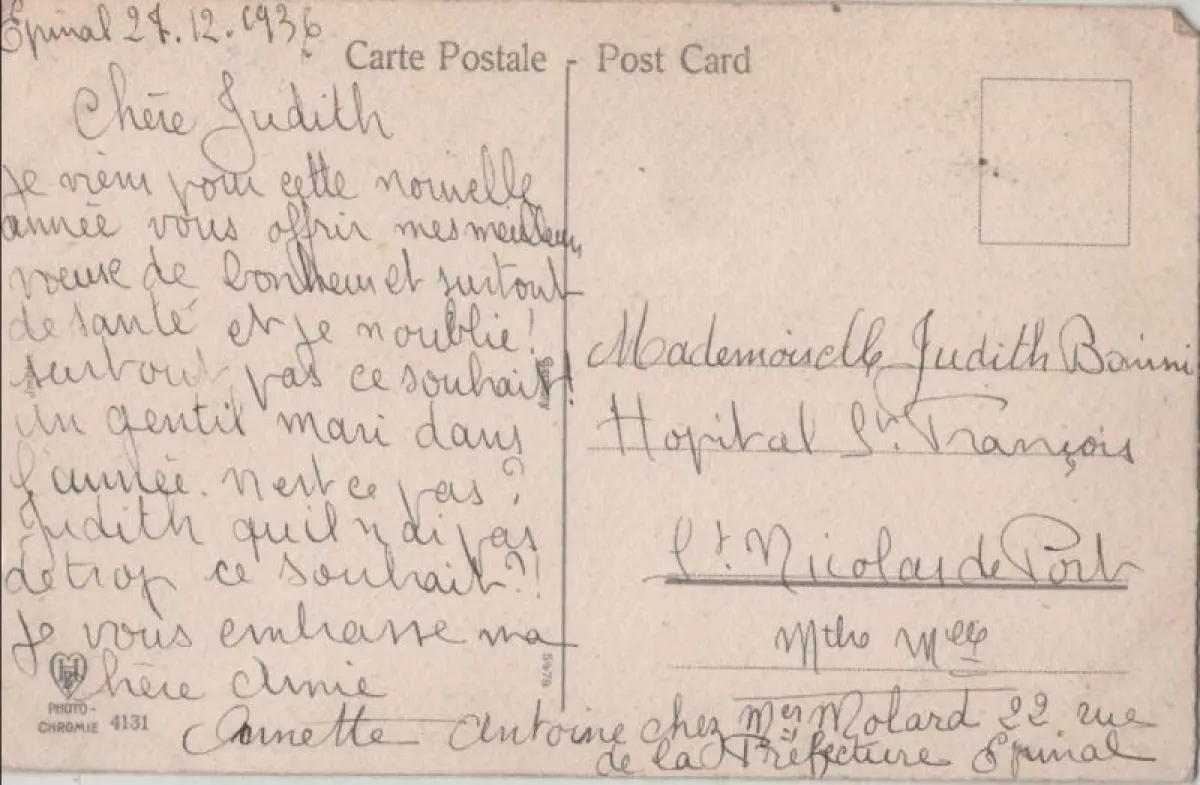 Epinal 27.12.1936
Carte Postale - Post Card
Chère Judith
je viens pour cette nouvelle
année vous offrir mes meilleurs
voeux de bonheur et surtout
de santé et je n oublie!
surtout pas ce souhait!
un gentil mari dans
l'année. n est ce pas?
Judith qu il n di pas
de trop ce souhait?!
Je vous embrasse ma
chère Amie
Annette Antoine chez Mer Molard 22 rue
de la Préfecture Epinal
Mademoiselle Judith Bonini
Hopital St. François
St Nicolas de Port
Mthe Mlle
PHOTO-
CHROMIE 4131
5478